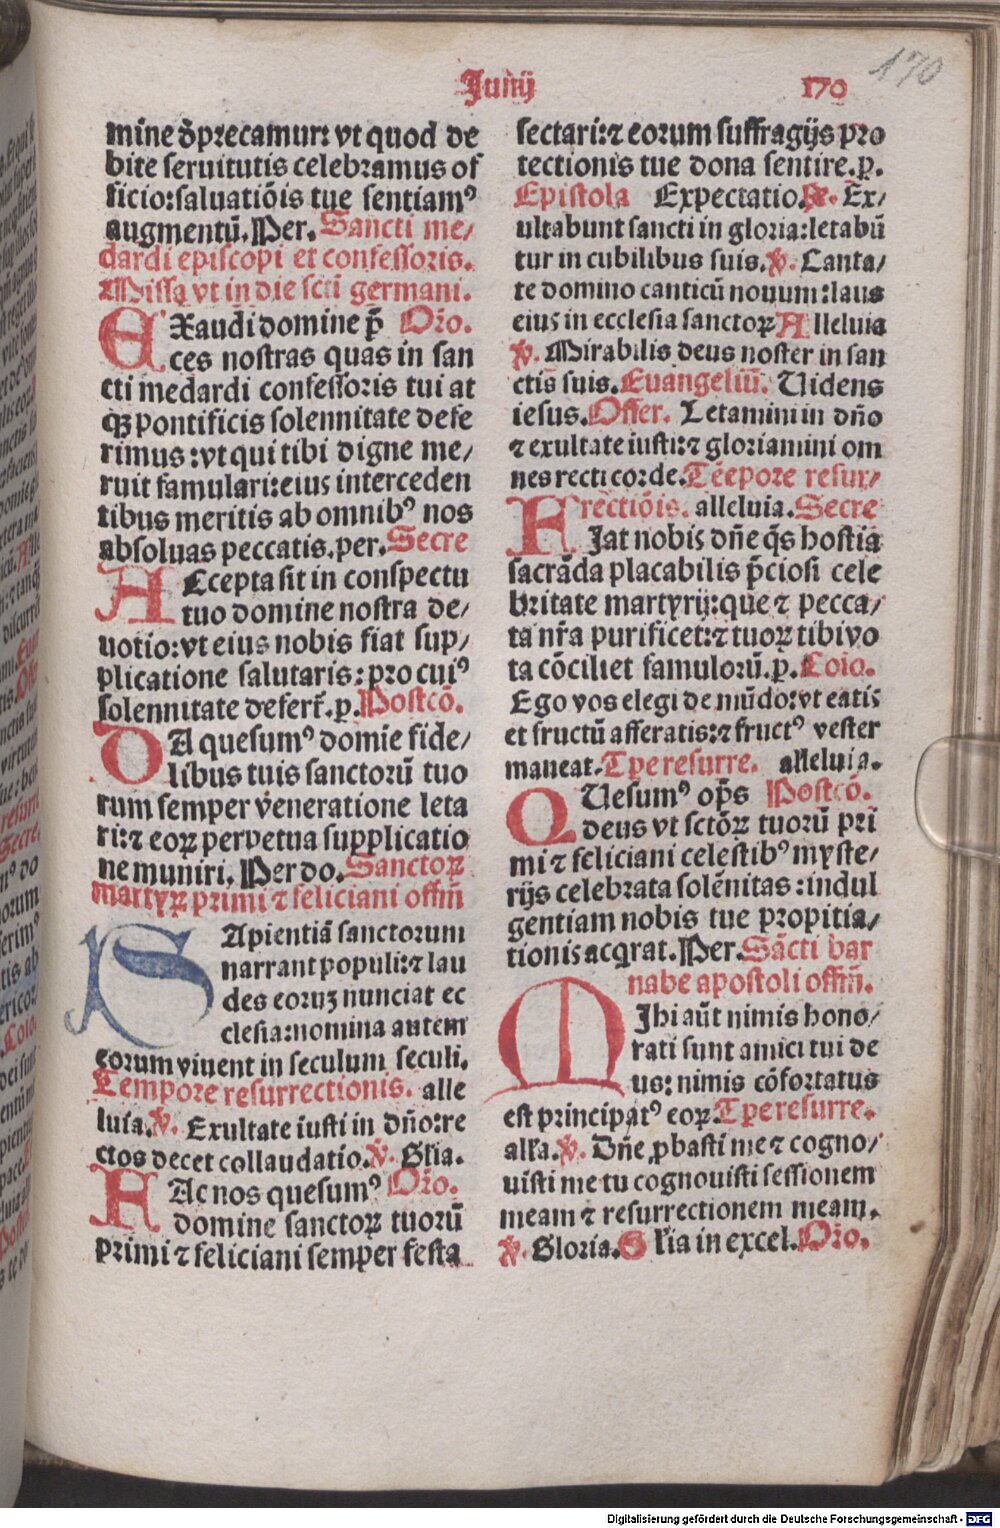 Junij
170
170
mine dp̄recamur: vt quod de
bite seruitutis celebramus of
ficio: saluatiōis tue sentiamꝰ
augmentū. Per. Sancti me/
dardi episcopi et confessoris.
Missa vt in die scti germani.
EXaudi domine p̄ Oro.
ces nostras quas in san
cti medardi confessoris tui at
qꝫ pontificis solennitate defe
rimus: vt qui tibi digne me/
ruit famulari: eius interceden
tibus meritis ab omnibꝰ nos
absoluas peccatis. per. Secre
ACcepta sit in conspectu
tuo domine nostra de/
uotio: vt eius nobis fiat sup/
plicatione salutaris: pro cuiꝰ
solennitate defert̄. p. Postcō.
DA quesumꝰ domīe fide/
libus tuis sanctorū tuo
rum semper v̄eneratione leta
ri: ⁊ eoꝝ perpetua supplicatio
ne muniri. Per do. Sanctoꝝ
martyꝝ primi ⁊ feliciani offm̄
SApientiā sanctorum
narrant populi: ⁊ lau
des eorum nunciat ec
clesia: nomina autem
eorum viuent in seculum seculi.
Tempore resurrectionis. alle
luia. ℣. Exultate iusti in dn̄o: re
ctos decet collaudatio. ℣. Glīa.
FAc nos quesumꝰ Oro.
domine sanctoꝝ tuorū
primi ⁊ feliciani semper festa
sectari: ⁊ eorum suffragijs pro
tectionis tue dona sentire. p.
Epistola Expectatio. ℟. Ex/
ultabunt sancti in gloria: letabū
tur in cubilibus suis. ℣. Canta/
te domino canticū nouum: laus
eius in ecclesia sanctoꝝ Alleluia
℣. Mirabilis deus noster in san
ctis suis. Euangeliū. Uidens
iesus. Offer. Letamini in dn̄o
⁊ exultate iusti: ⁊ gloriamini om
nes recti corde. Tēpore resur/
rectiōis. alleluia. Secre
FIat nobis dn̄e qs̄ hostia
sacrāda placabilis p̄ciosi cele
britate martyrij: que ⁊ pecca/
ta nr̄a purificet: ⁊ tuoꝝ tibi vo
ta cōciliet famulorū. p. Coīo.
Ego vos elegi de mūdo: vt eatis
et fructū afferatis: ⁊ fructꝰ vester
maneat. Tꝑe resurre. alleluia.
QUesumꝰ op̄s Postcō.
deus vt sctōꝝ tuorū pri
mi ⁊ feliciani celestibꝰ myste/
rijs celebrata solēnitas: indul
gentiam nobis tue propitia/
tionis acqrat. Per. Sācti bar
nabe apostoli offm̄.
MIhi aūt nimis hono/
rati sunt amici tui de
us: nimis cōfortatus
est principatꝰ eoꝝ. Tꝑe resurre.
alla. ℣. Dn̄e ꝓbasti me ⁊ cogno/
uisti me tu cognouisti sessionem
meam ⁊ resurrectionem meam.
℣. Gloria. Glīa in excel. Oro.
Digitalisierung gefördert durch die Deutsche Forschungsgemeinschaft - DFG